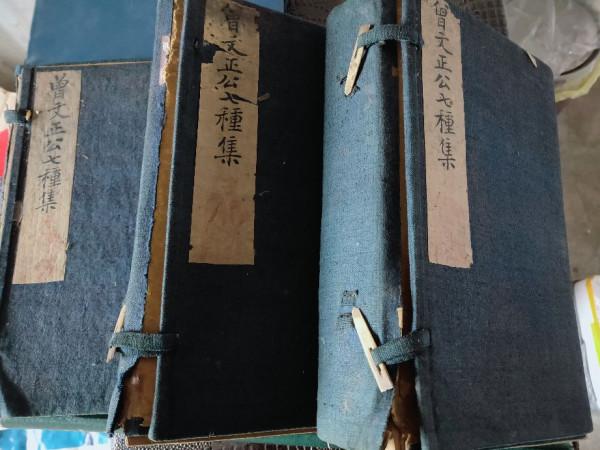 曾文正公七種集
曾文正公七種集
曾文正公七種集